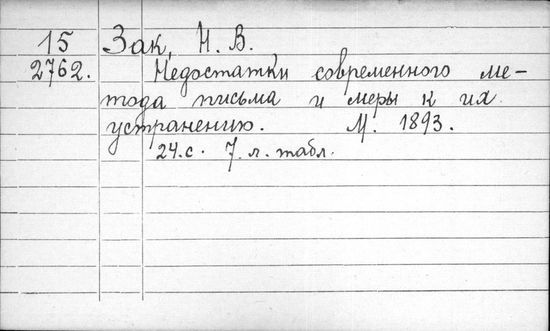 15 Зак, Н. В.
2762. Недостатки современного ме-
тода письма и меры к их
устранению. М. 1893.
24.с. 7.л.табл.